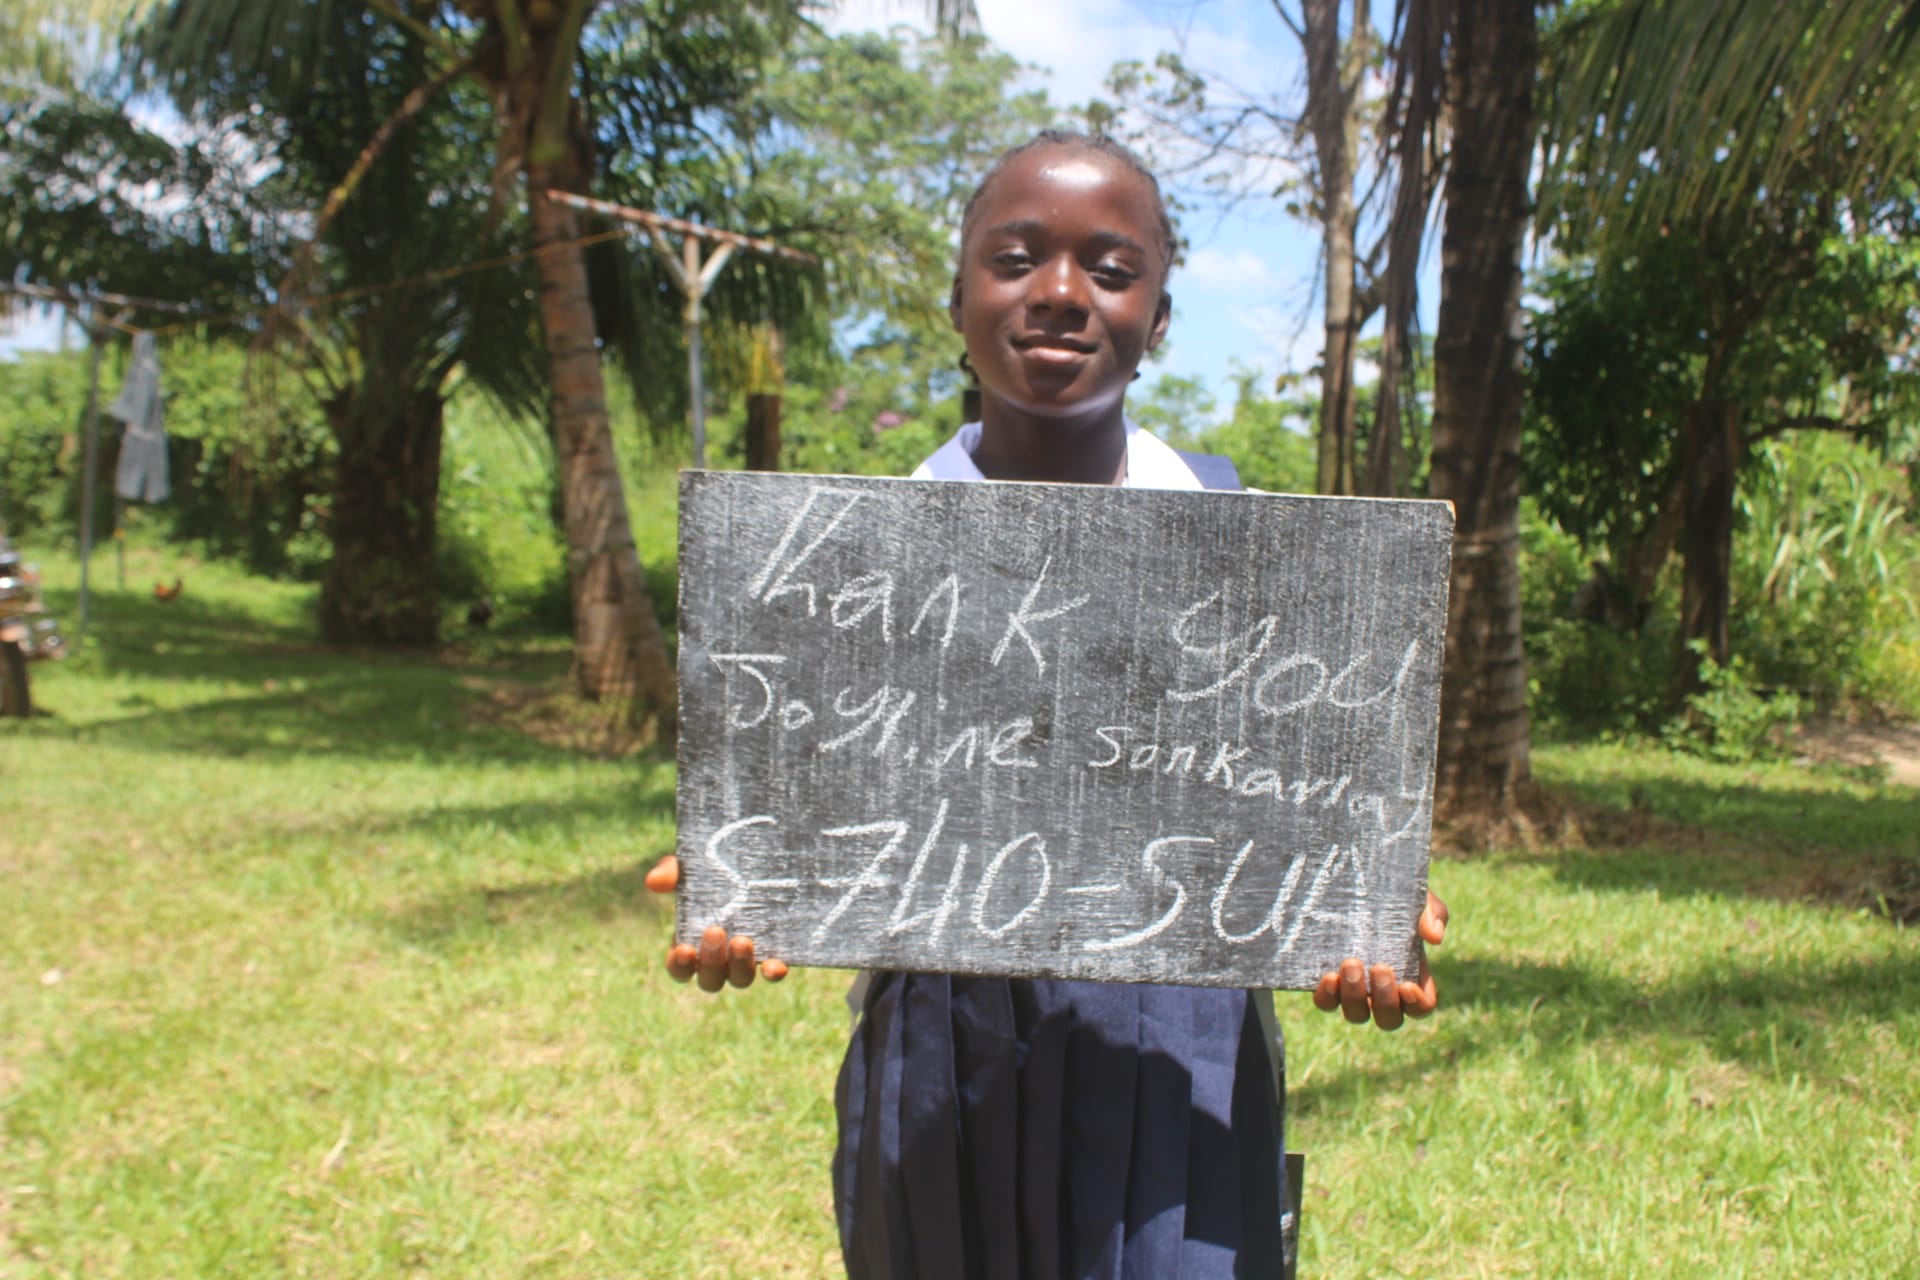 Thank you
Joyline Sonkarlay
S-740-SUA